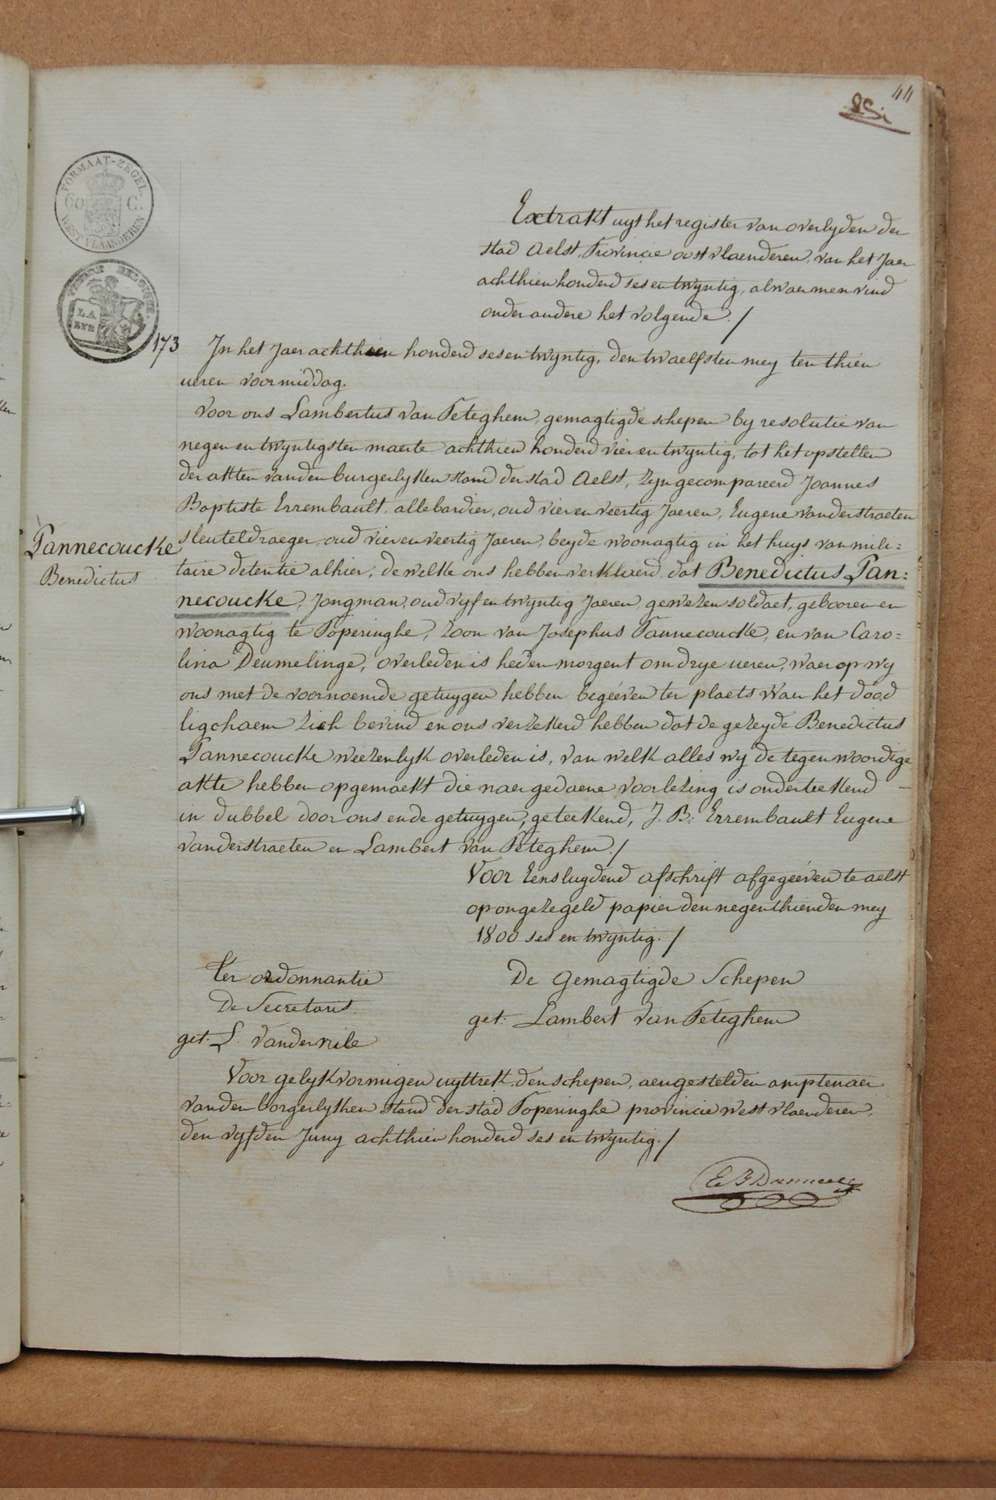 44
FORMAAT-ZEGEL
60 C.
WEST VLAANDEREN
173
Extrakt uyt het register van overlyden der
stad Aelst, Provincie oost vlaenderen, van het Jaer
achthien honderd ses en twyntig, alwaer men vind
onder andere het volgende ./
In het Jaer achthien honderd ses en twyntig, den twaelfsten mey ten thien
ueren voormiddag.
Voor ons Lambertus van Peteghem, gemagtigde schepen by resolutie van
negen en twyntigsten maerte achthien honderd vier en twyntig, tot het opstellen
der akten van den burgerlyken stand der stad Aelst, Zyn gecompareerd Joannes
Baptiste Errembault, allebardier, oud vier en veertig Jaeren, Eugene vanderstraeten
sleuteldraeger, oud vier en veertig Jaeren, beyde woonagtig in het huys van mili-
taire detentie alhier, de welke ons hebben verklaerd, dat Benedictus Pan-
necoucke, Jongman, oud vyf en twyntig Jaeren, gewezen soldaet, gebooren en
woonagtig te Poperinghe, Zoon van Josephus Pannecoucke, en van Caro-
lina Deumelinge, overleden is heden morgent om drye ueren, waer op wy
ons met de voornoemde getuygen hebben begeéven ter plaets Waer het dood
ligchaem Zich bevind en ons verzekerd hebben dat de gezeyde Benedictus
Pannecoucke weezenlyk overleden is, van welk alles wy de tegenwoordige
akte hebben opgemaekt die naer gedaene voorlezing is onderteekend
in dubbel door ons en de getuygen, geteekend, J. B. Errembault Eugene
vanderstraeten en Lambert van Peteghem ./
Pannecoucke
Benedictus
Voor Eensluydend afschrift afgegeéven te aelst
op ongezegeld papier den negenthienden mey
1800 ses en twyntig ./
Ter ordonnantie
De Secretaris
get. L. vander
De gemagtigde Schepen
get. Lambert van Peteghem
Voor gelykvormigen uyttrek den schepen, aengestelden amptenaer
van den borgerlyken stand der stad Poperinghe provincie west vlaenderen,
den vyfden Juny achthien honderd ses en twyntig ./